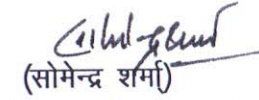 (सोमेन्द्र शर्मा)